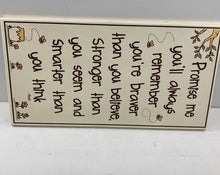 Promise me
you'll always
remember
you're braver
than you believe,
stronger than
you seem and
smarter than
you think